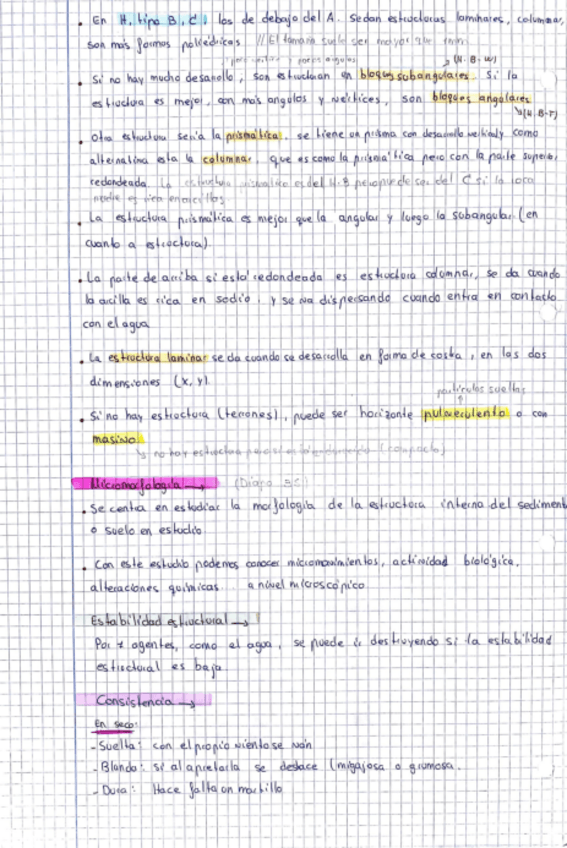 • En H. tipo B, C, los de debajo del A. Se dan estructuras laminares, columnar,
son más formas poliédricas // El tamaño suele ser mayor que
(H. B-W)
• Si no hay mucho desarrollo, son estructuran en bloques subangulares. Si la
estructura es mejor, con más angulos y vértices, son bloques angulares
(H. B-T)
• Otra estructura sería la prismática, se tiene un prisma con desarrollo vertical y como
alternativa esta la columnar, que es como la prismática pero con la parte superior,
redondeada. La estructura prismática es del H.B pero puede ser del C si la roca
madre es rica en arcillas
• La estructura prismática es mejor que la angular y luego la subangular (en
cuanto a estructura)
• La parte de arriba si está redondeada es estructura columnar, se da cuando
la arcilla es rica en sodio, y se va dispersando cuando entra en contacto
con el agua
• La estructura laminar se da cuando se desarrolla en forma de costra, en las dos
dimensiones (x, y).
partículas sueltas
• Si no hay estructura (terrones), puede ser horizonte pulverulento o con
masivo
no hay estructura pero si (compacto)
Micromorfología → (Diapo 35)
• Se centra en estudiar la morfología de la estructura interna del sediment
o suelo en estudio
• Con este estudio podemos conocer micromovimientos, actividad biológica,
alteraciones químicas... a nivel microscópico
Estabilidad estructural →
Por ≠ agentes, como el agua, se puede ir destruyendo si la estabilidad
estructural es baja
Consistencia →
En seco:
- Suelta: con el propio viento se van
- Blanda: si al apretarla se deshace (migajosa o grumosa.
- Dura: Hace falta un martillo